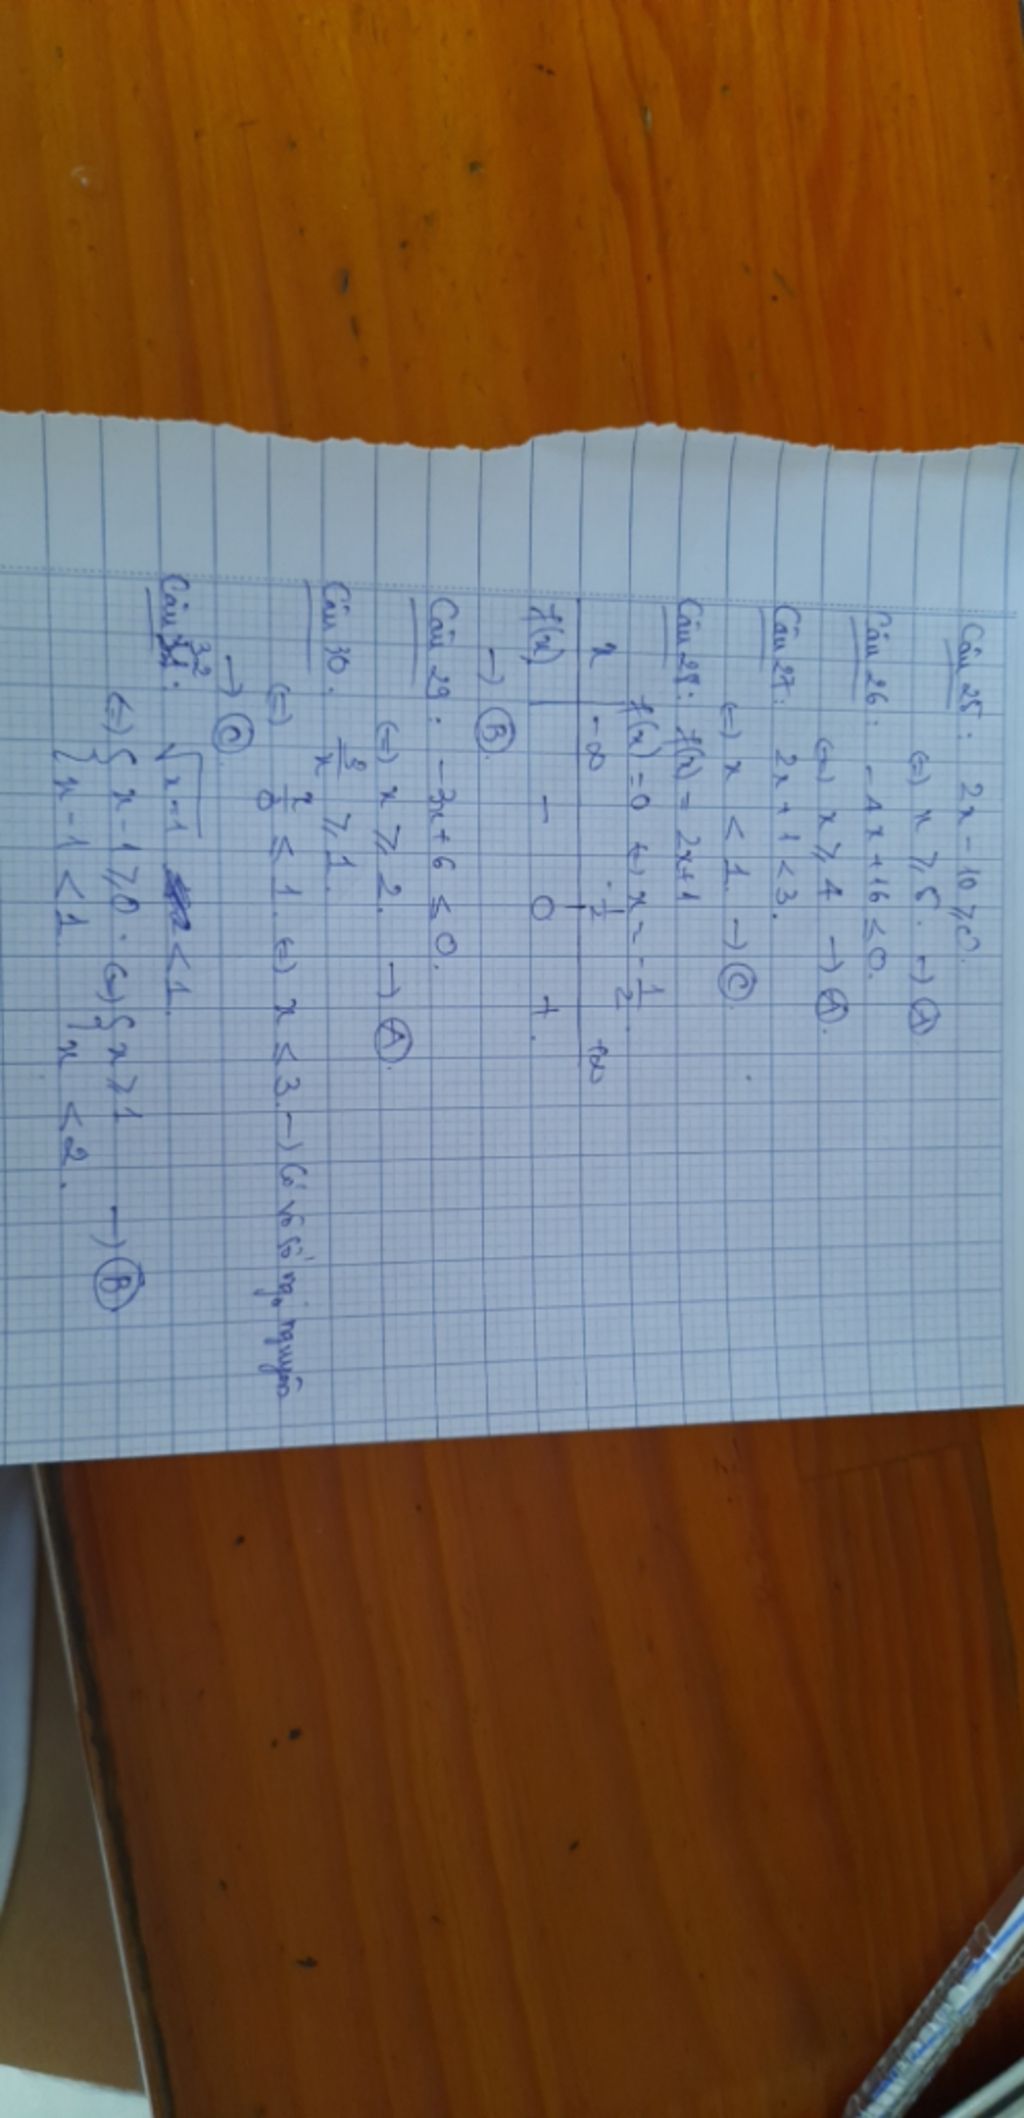 Câu 25: 2x - 10 ≥ 0.
(=) x ≥ 5. → (A)
Câu 26: -4x + 16 ≤ 0.
(=) x ≥ 4 → (A).
Câu 27: 2x + 1 < 3.
(=) x < 1. → (C).
Câu 28: f(x) = 2x+1
f(x) = 0 (=) x = -1/2.
x -∞ -1/2 +∞
f(x) - 0 +.
→ (B).
Câu 29: -3x + 6 ≤ 0.
(=) x ≥ 2. → (A).
Câu 30: /x ≥ 1.
(=) x/ ≤ 1. (=) x ≤ 3. → Có vô số ng. nguyên
→ (C)
Câu 32: √x-1 < 1.
(=) { x - 1 ≥ 0. (=) { x ≥ 1 → (B)
{ x - 1 < 1. { x < 2.